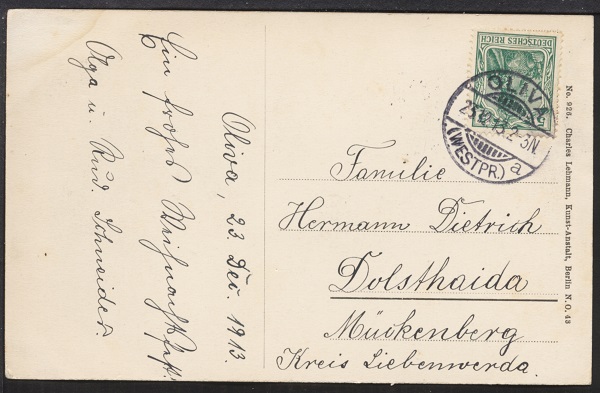 Oliva, 23. Dez. 1913.
Ein frohes Weihnachtsfest!
Olga u. Rud. Schneider.
DEUTSCHES REICH
OLIVA
23.12.13. 2-3N.
(WESTPR.)
a
Familie
Hermann Dietrich
Dolsthaida
Mückenberg
Kreis Liebenwerda.
No. 926. Charles Lehmann, Kunst-Anstalt, Berlin N.O. 43